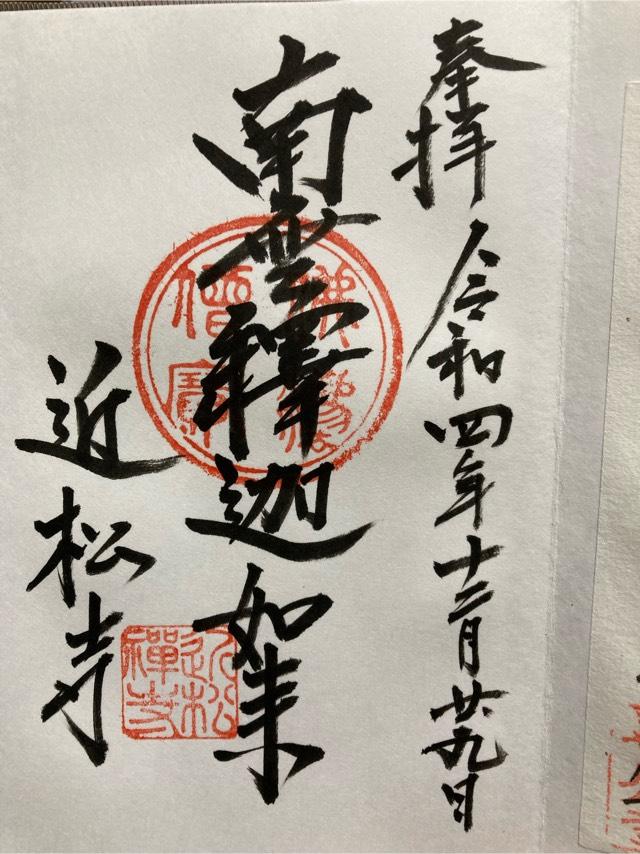 奉拝
令和四年十二月廿九日
南無釋迦如来
佛法僧寶
近松寺
近松禅寺